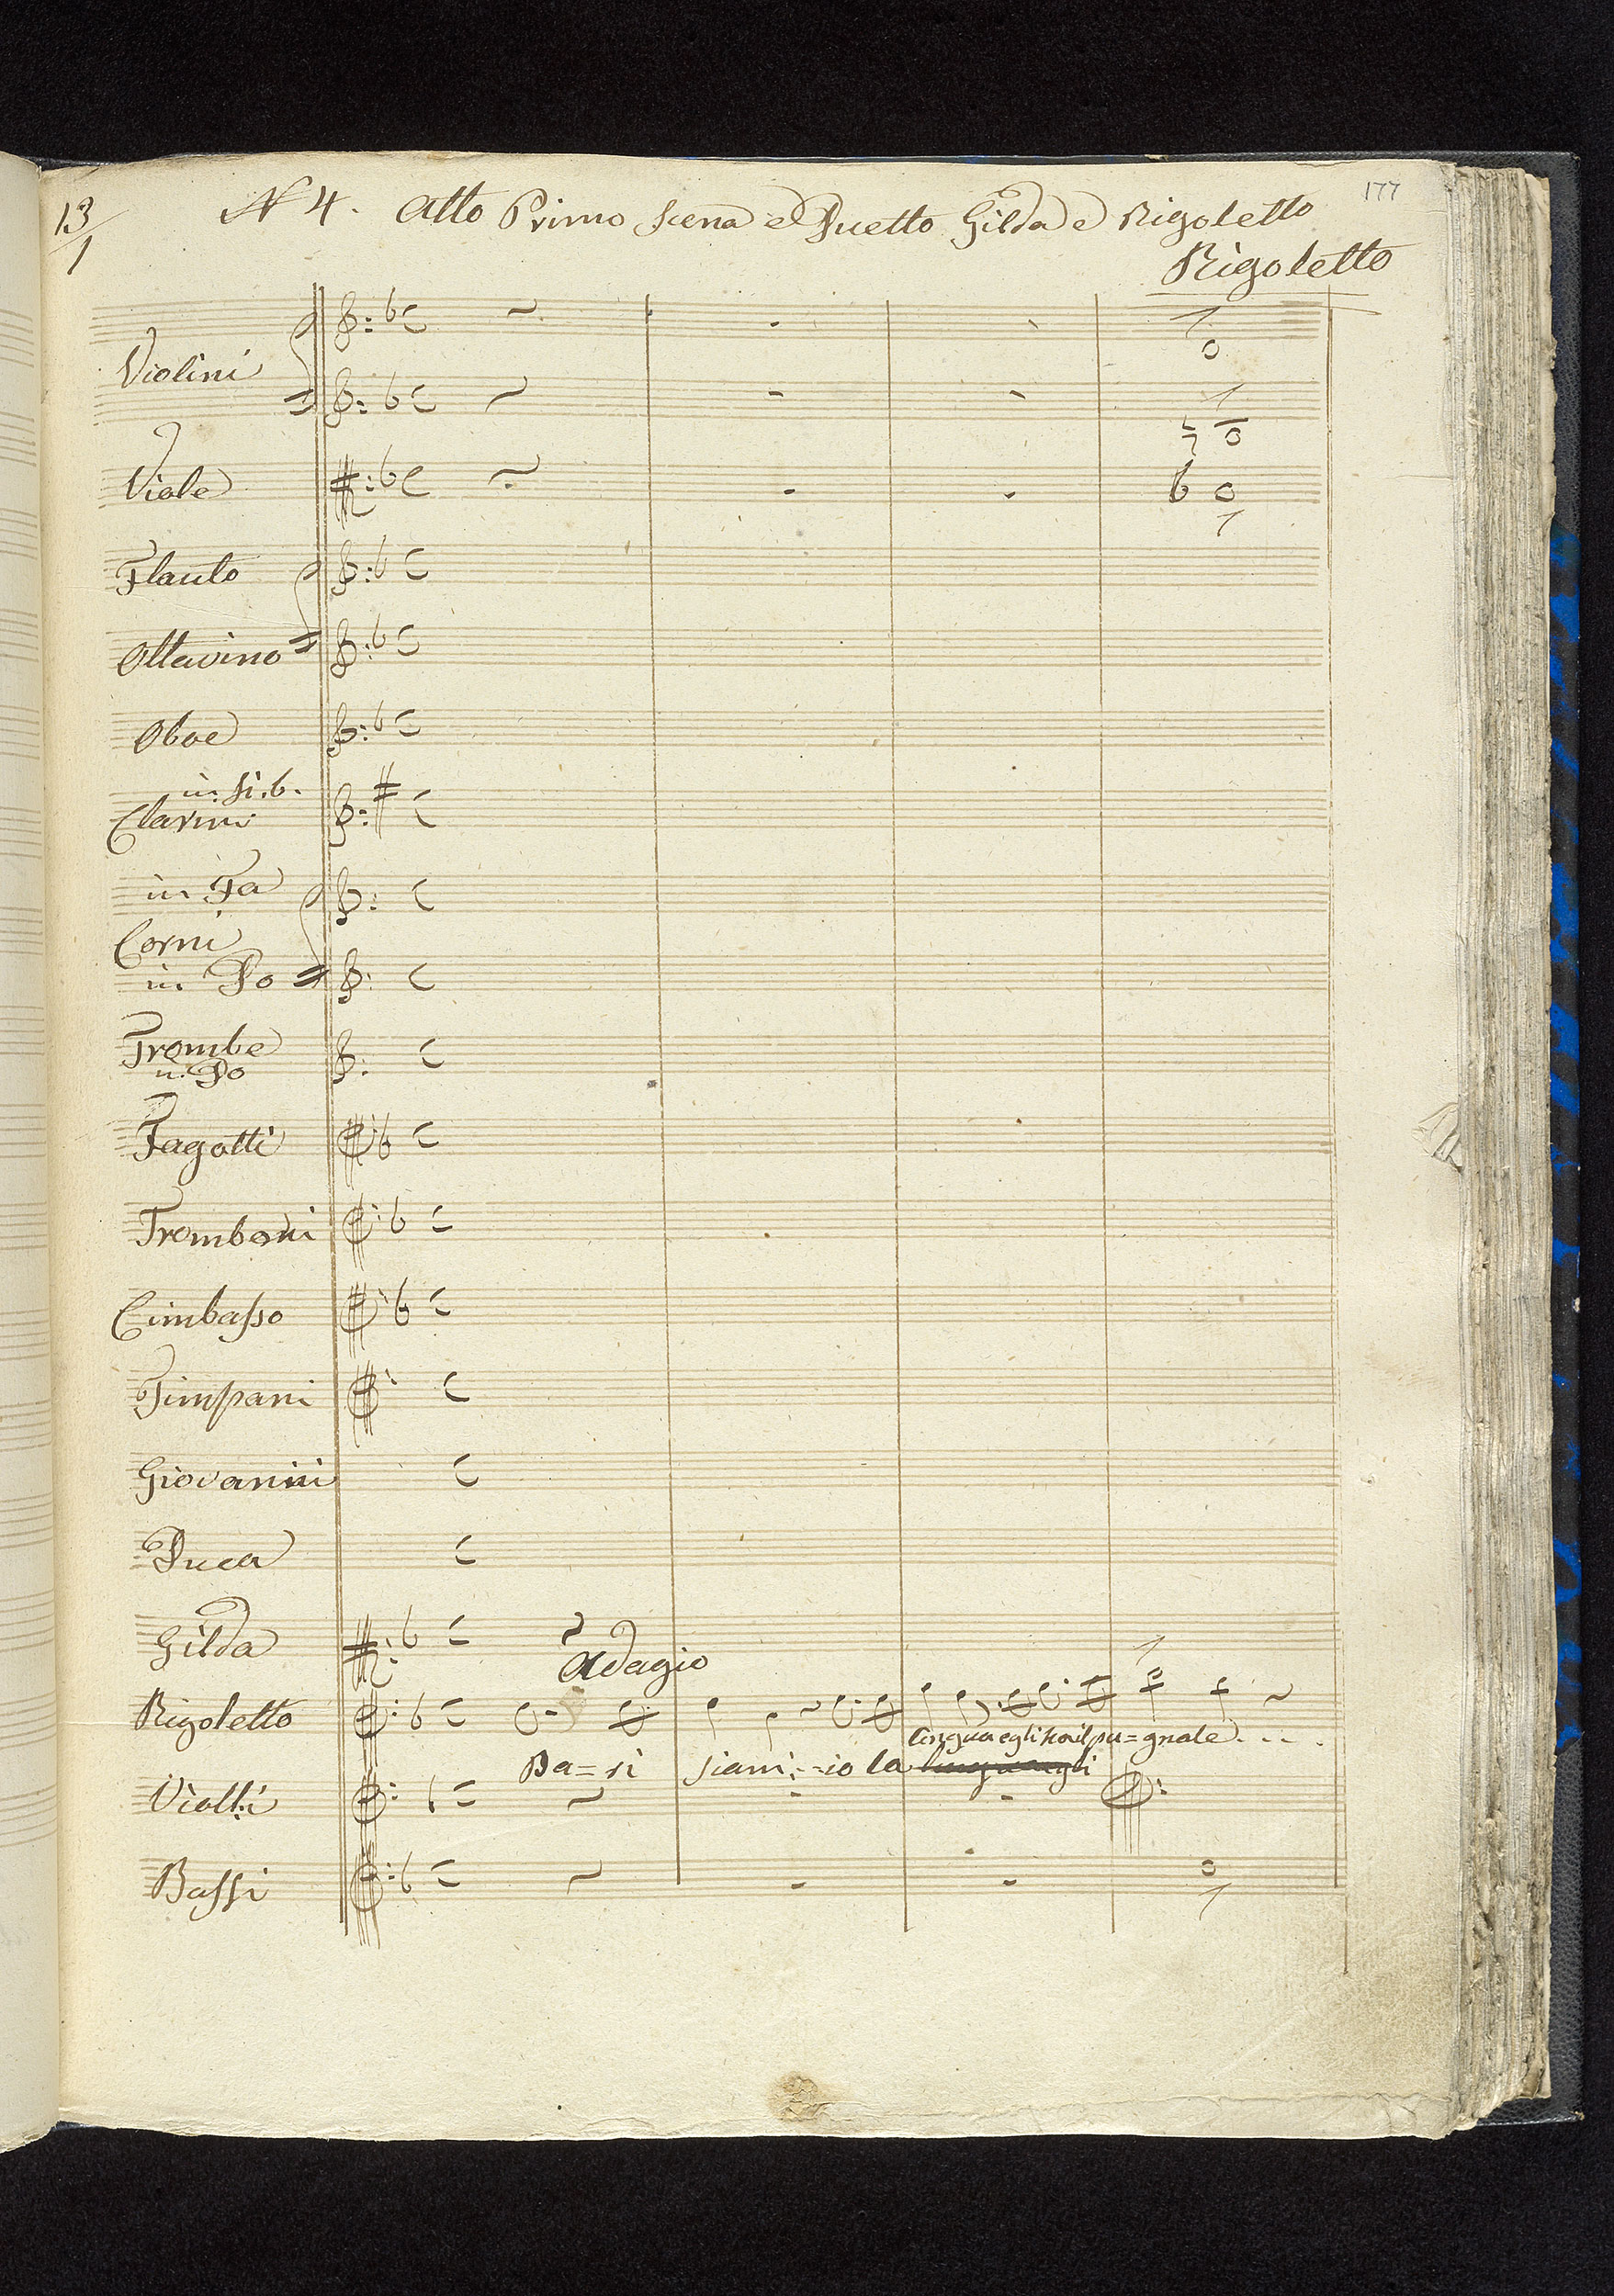 177
13/1
N 4. Atto Primo Scena e Duetto Gilda e Rigoletto
Rigoletto
Violini
Viole
Flauto
Ottavino
Oboe
in Si.b.
Clarini
in Fa
Corni
in Do
Trombe
in Do
Fagotti
Tromboni
Cimbasso
Timpani
Giovanni
Duca
Gilda
Adagio
Rigoletto
lingua egli ha il pu=gnale....
Pa=ri siam:-io la
Violli
Bassi